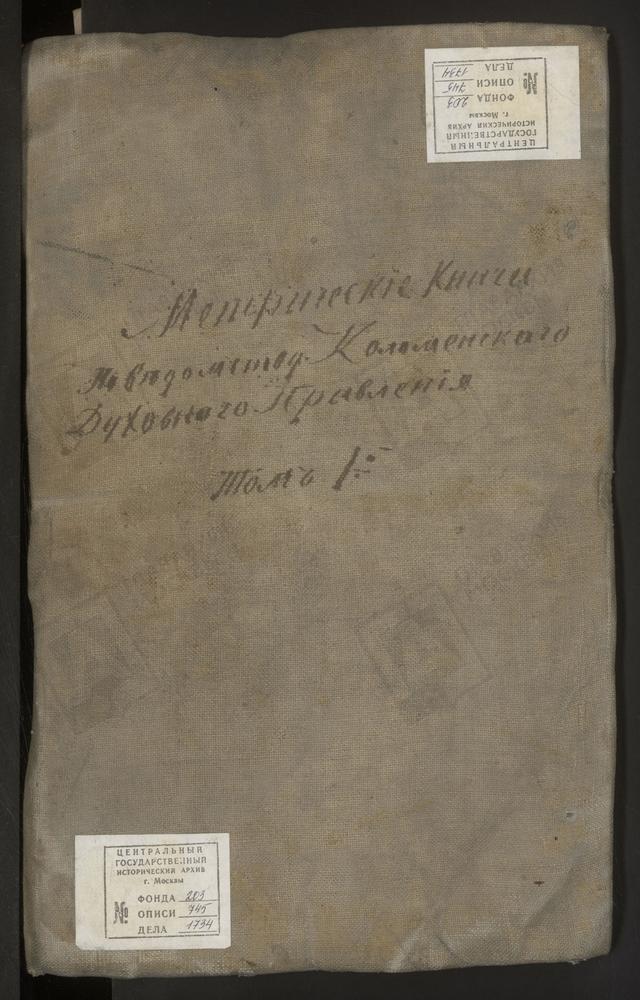 ЦЕНТРАЛЬНЫЙ
ГОСУДАРСТВЕННЫЙ
ИСТОРИЧЕСКИЙ АРХИВ
г. Москвы
№
ФОНДА 203
ОПИСИ 745
ДЕЛА 1734
Метрическіе Книги
По вѣдомству Коломенскаго
Духовнаго Правленія
Томъ 1й
ЦЕНТРАЛЬНЫЙ
ГОСУДАРСТВЕННЫЙ
ИСТОРИЧЕСКИЙ АРХИВ
г. Москвы
№
ФОНДА 203
ОПИСИ 745
ДЕЛА 1734